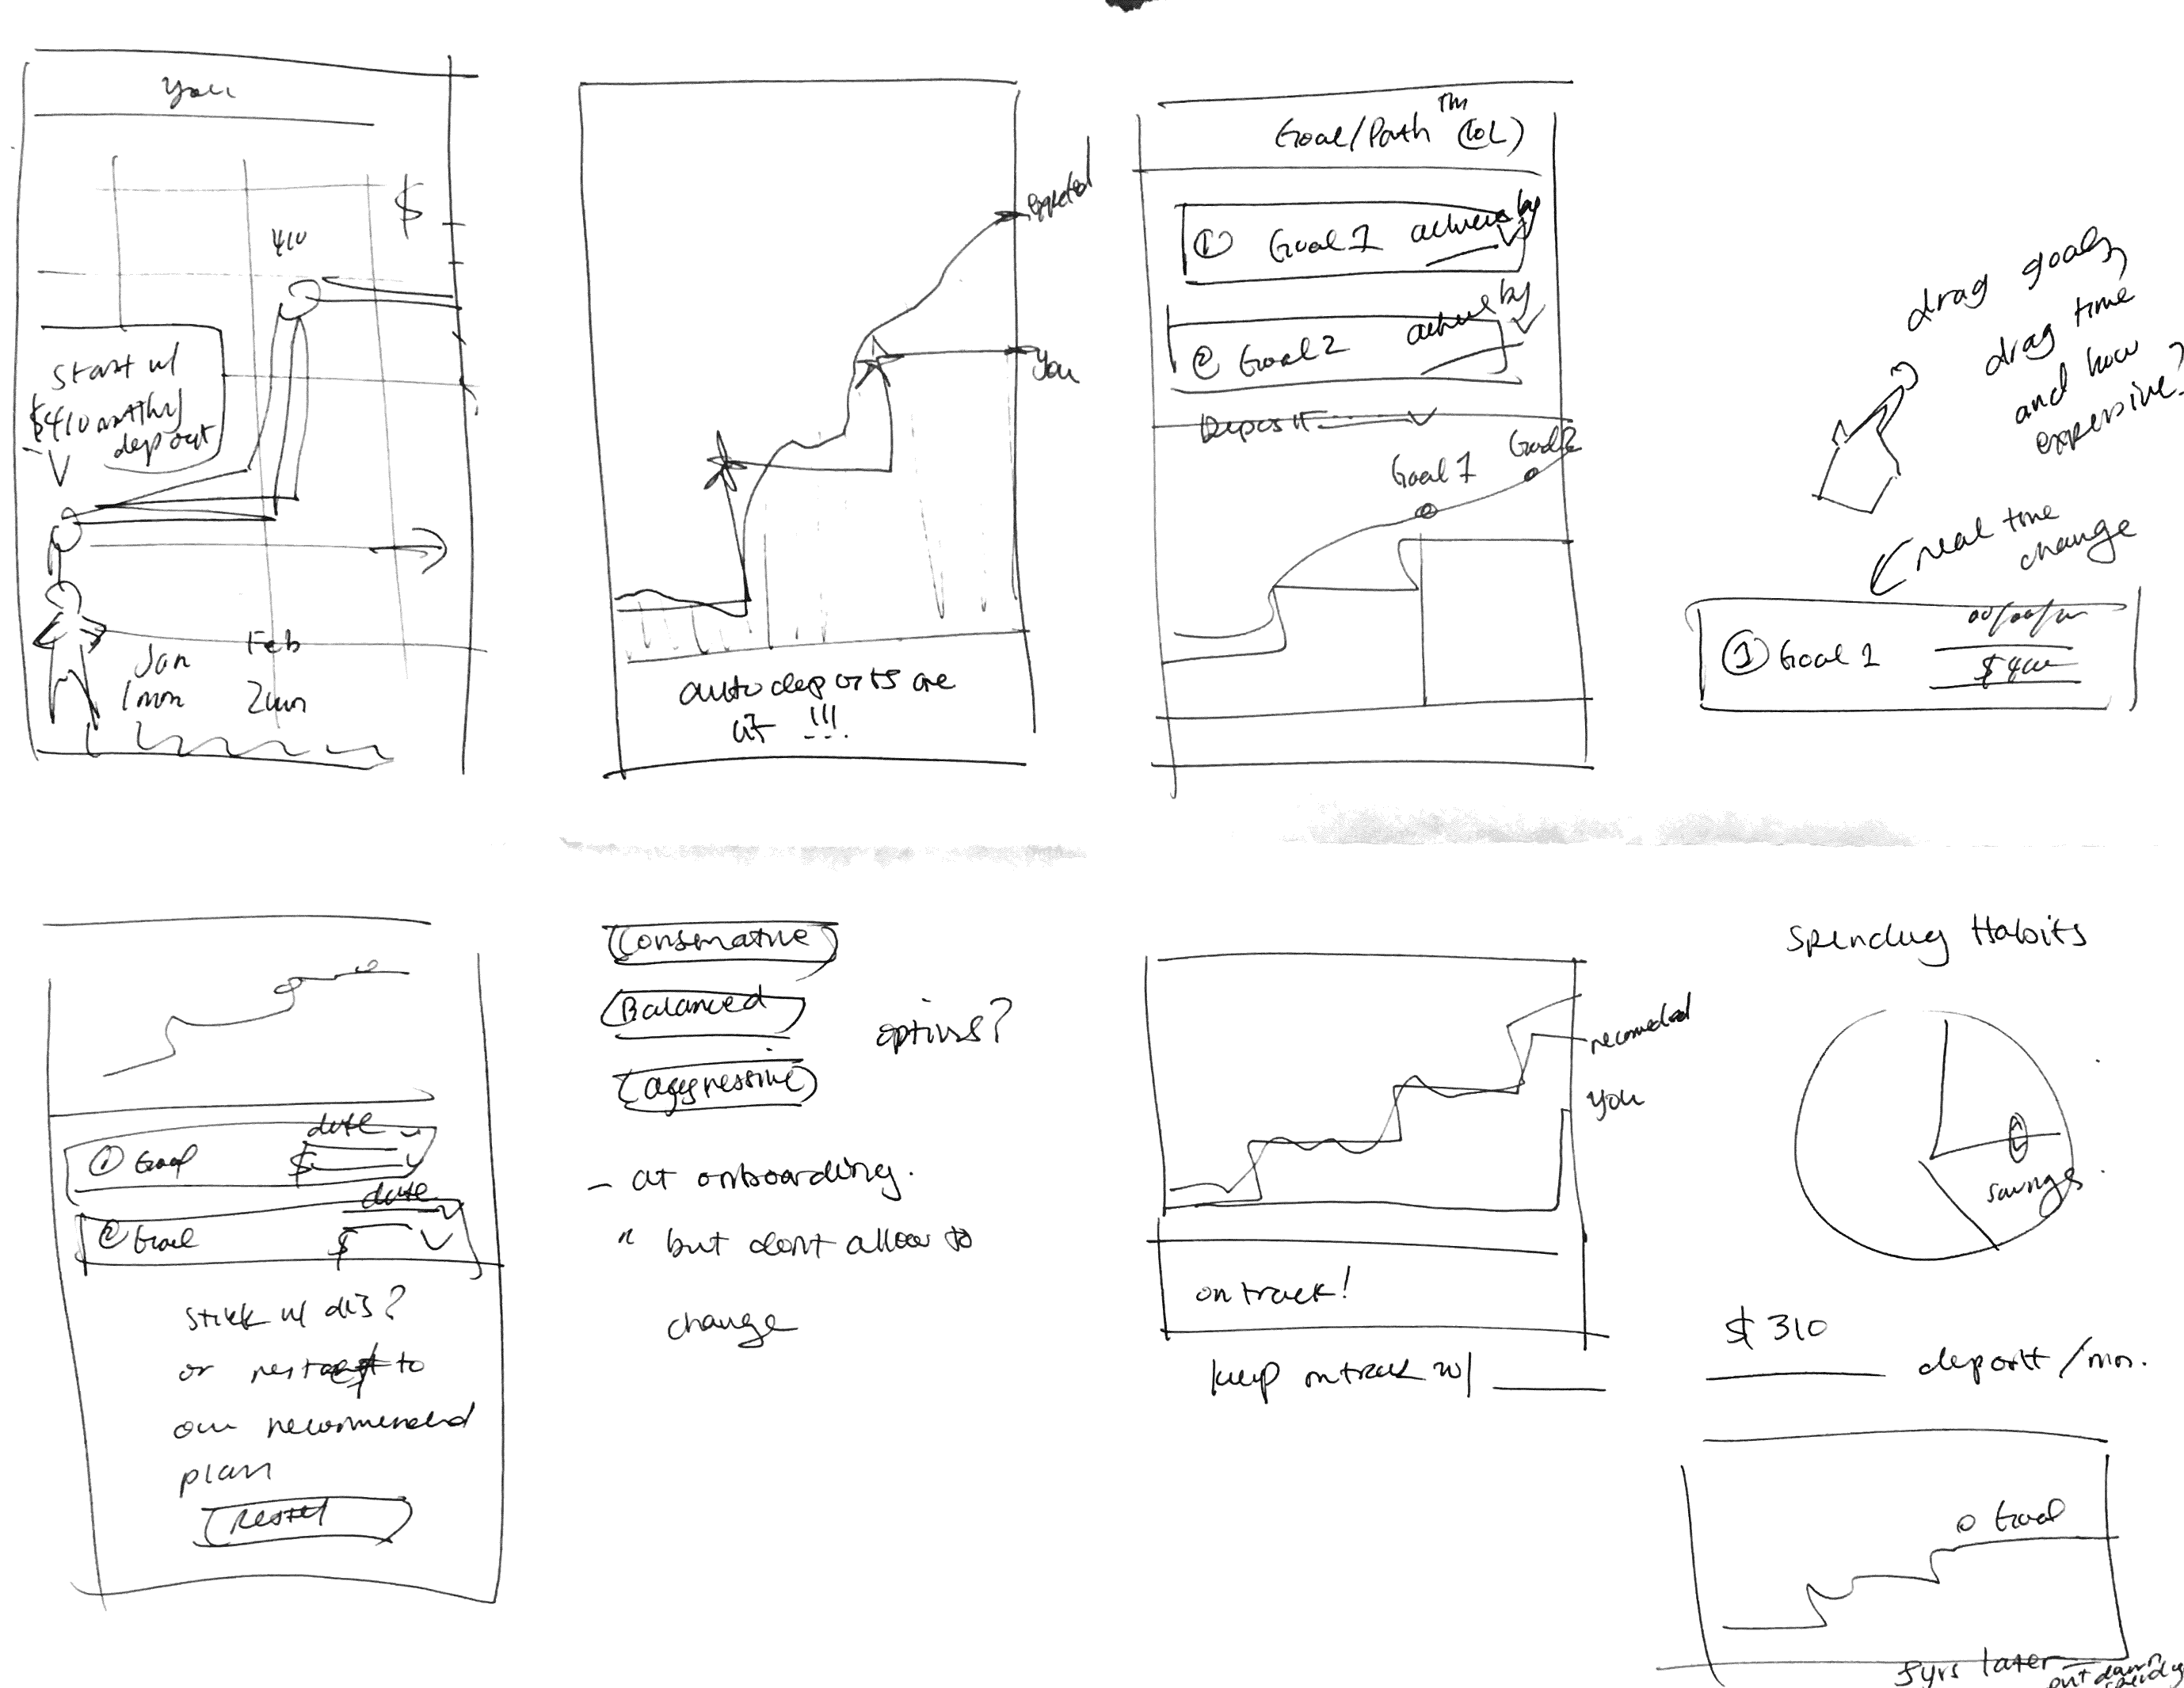 you
$
410
start w/
$410 monthly
deposit
Jan
Feb
1 mon
2 mn
expected
you
auto deposits are
lit !!!
Goal/Path ™ (LOL)
① Goal 1 achieve by
② Goal 2 achieve by
Deposit
Goal 1
Goal 2
drag goals,
drag time
and how
expensive?
real time
change
① Goal 1
00/00/00
$400
① Goal
date
$
② Goal
date
$
stick w/ dis?
or restart to
our recommended
plan
Reset
Conservative
Balanced
aggressive
options?
- at onboarding.
" but dont allow to
change
recomended
you
on track!
keep on track w/
Spending Habits
savings
$310
deposit / mon.
Goal
5yrs later